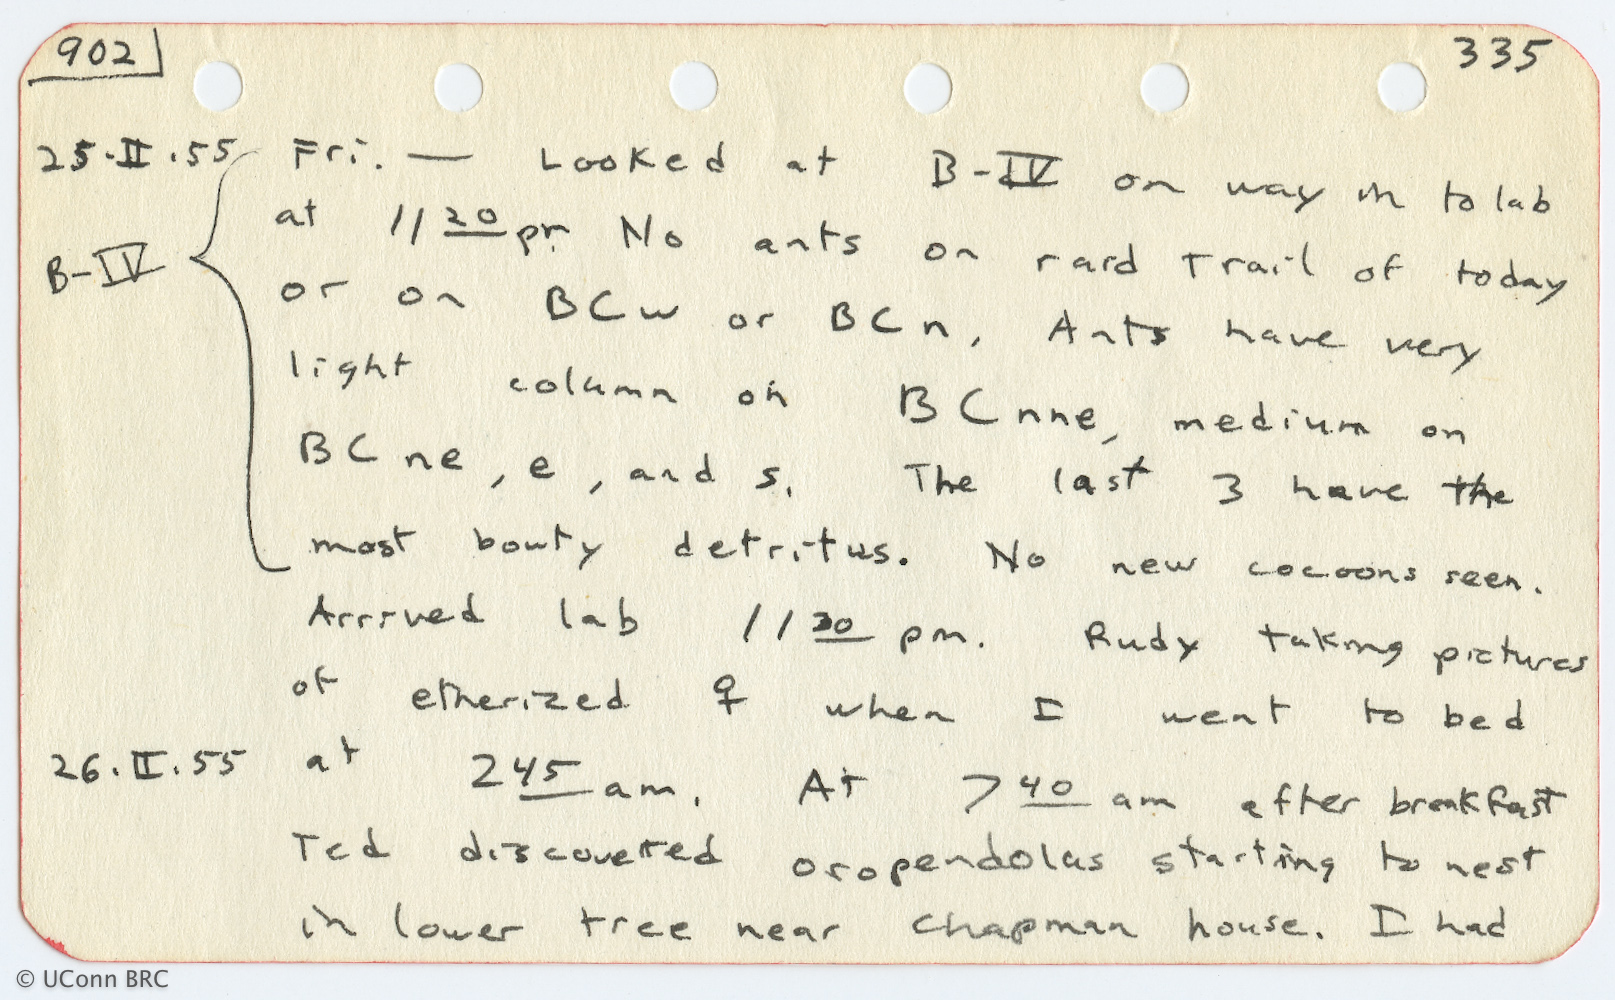 902 335
25.II.55 Fri. — Looked at B-IV on way in to lab
at 11 20 pm No ants on raid trail of today
B-IV
or on BCw or BCn. Ants have very
light column on BCnne, medium on
BCne, e, and s. The last 3 have the
most booty detritus. No new cocoons seen.
Arrived lab 11 30 pm. Rudy taking pictures
of etherized ♀ when I went to bed
26.II.55 at 2 45 am. At 7 40 am after breakfast
Ted discovered oropendolas starting to nest
in lower tree near Chapman house. I had
© UConn BRC